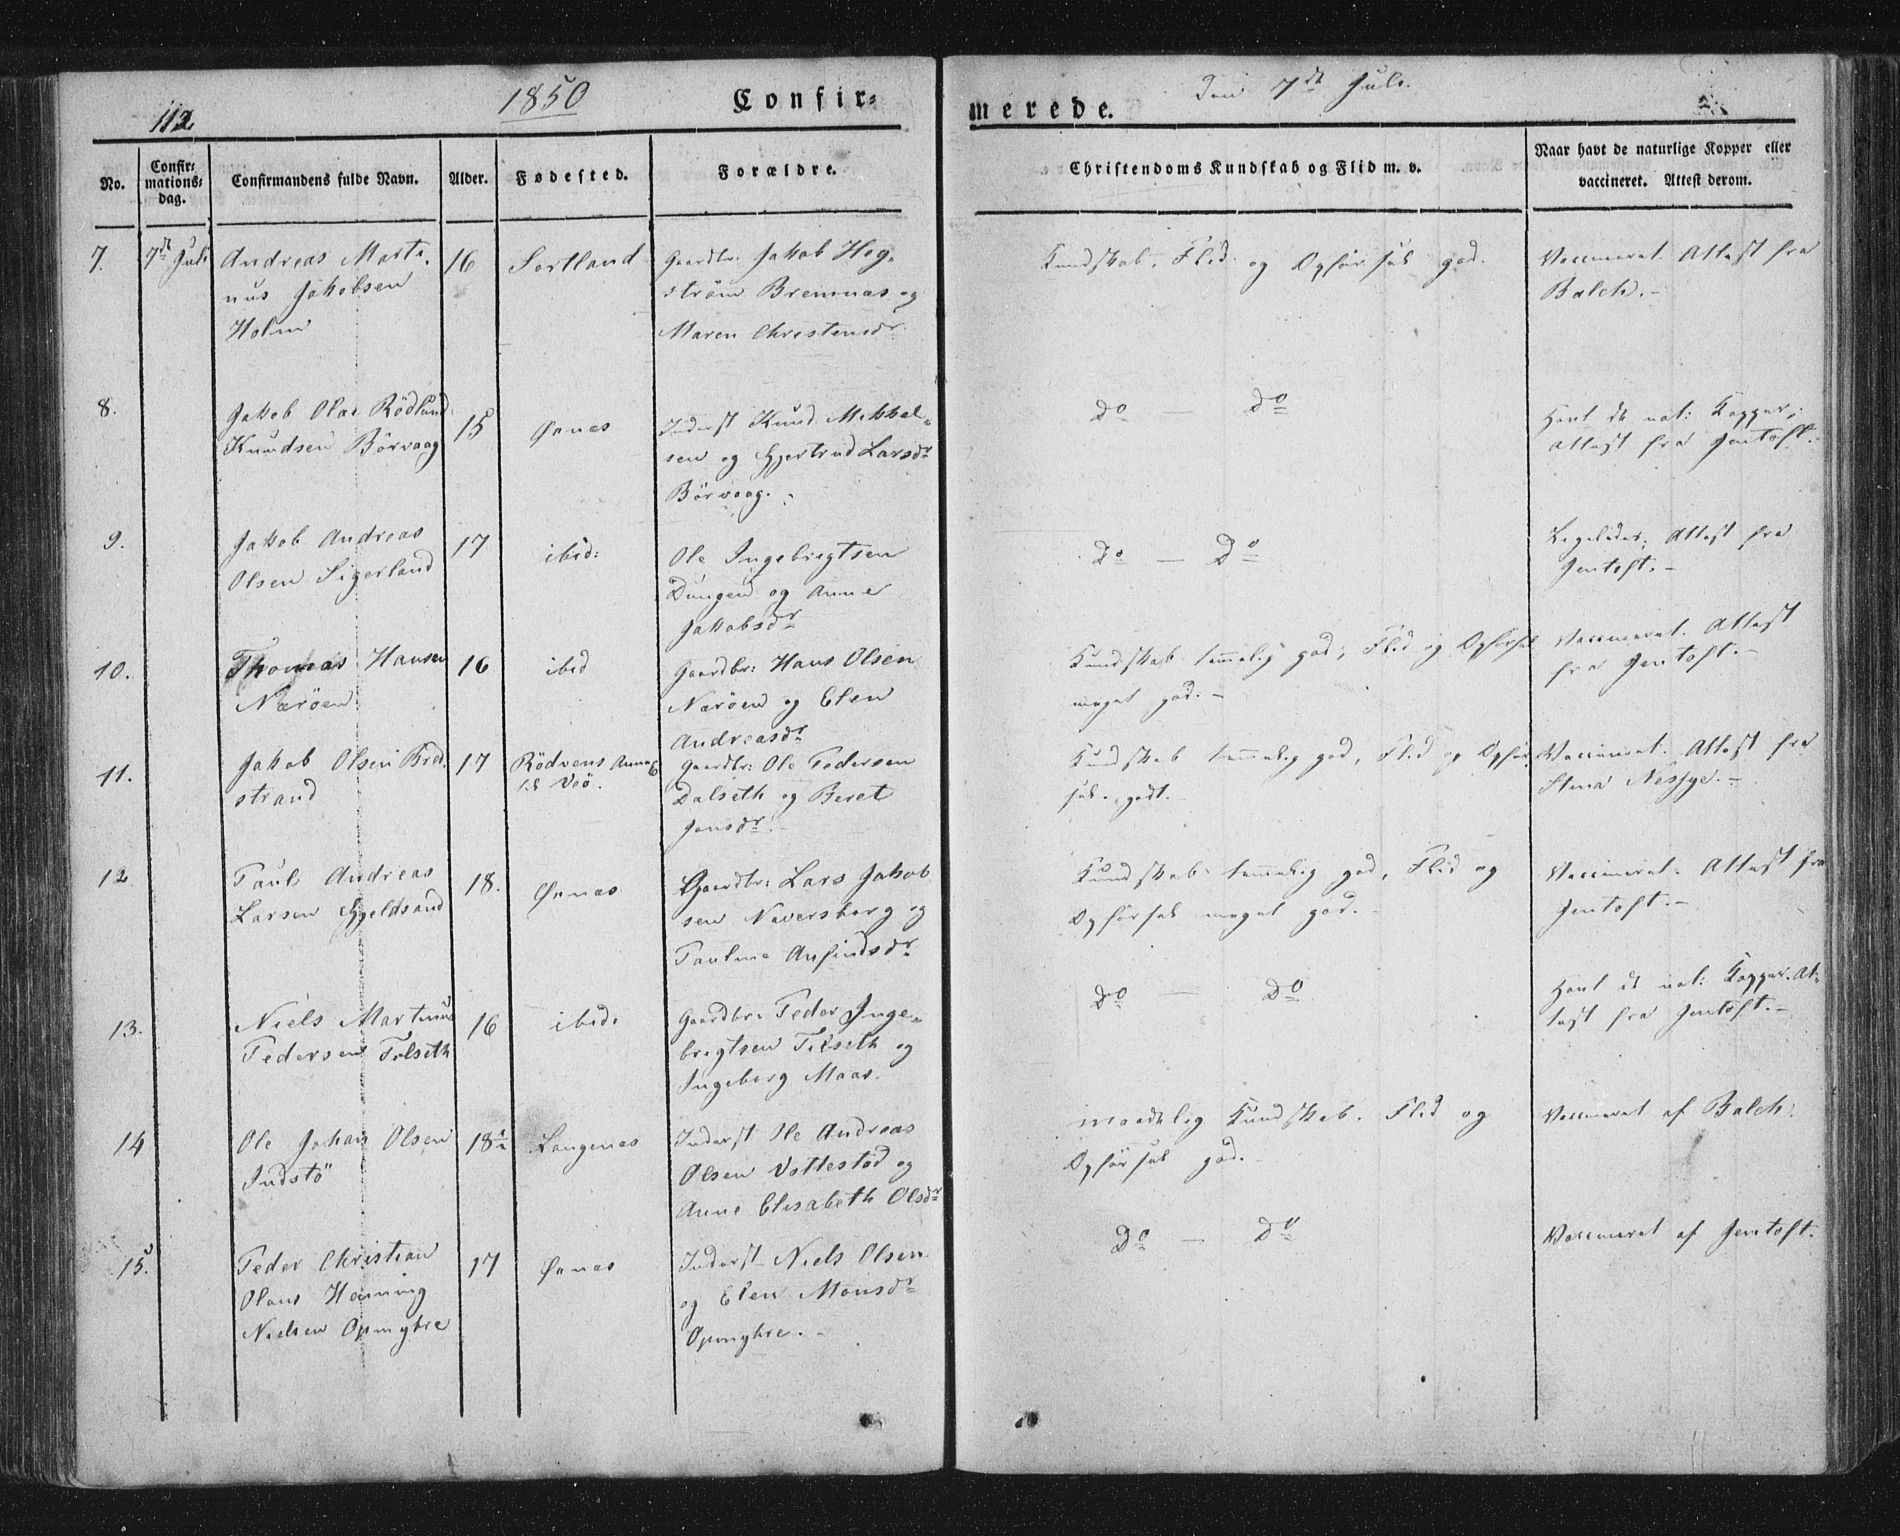 112
1850
Confir-
merede.
Den 7de Juli.
No.
Confir-
mations-
dag.
Confirmandens fulde Navn.
Alder.
Fødested.
Forældre.
Christendoms Kundskab og Flid m. v.
Naar havt de naturlige Kopper eller
vaccineret. Attest derom.
7.
7de Juli
Andreas Marti-
nus Jakobsen
Holm
16
Sortland
Gaardbr: Jakob Hog-
ström Bremnas og
Maren Christensdr
Kundskab, Flid og Opförsel god.
Vaccineret. Attest fra
Balch.-
8.
Jakob Olai Rödlund
Knudsen Börvaag
15
Öxnes
Inderst Knud Mikkel-
sen og Gjertrud Larsdr
Börvaag.
Do — Do
Havt de nat: Kopper,
Attest fra Jentoft.-
9.
Jakob Andreas
Olsen Sigerland
17
ibid:
Ole Ingebrigtsen
Dungen og Anne
Jakobsdr
Do — Do
Ligeledes, Attest fra
Jentoft.-
10.
Thomas Hansen
Næröen
16
ibid
Gaardbr: Hans Olsen
Næröen og Elen
Andreasdr
Kundskab temmelig god, Flid og Opförsel
meget god.-
Vaccineret. Attest
fra Jentoft.-
11.
Jakob Olsen Bred-
strand
17
Rödvens Annex
til Veö.
Gaardbr: Ole Pedersen
Dalseth og Beret
Jonsdr.
Kundskab temmelig god, Flid og Opför-
sel godt.
Vaccineret. Attest fra
Stina Nessye.-
12
Paul Andreas
Larsen Gjeldsand
18.
Öxnes
Gaardbr: Lars Jakob
sen Naversberg og
Pauline Anfindsdr
Kundskab temmelig god, Flid og
Opförsel meget god.
Vaccineret. Attest fra
Jentoft.-
13.
Niels Martinus
Pedersen Tilseth
16
ibid:
Gaardbr: Peder Inge-
brigtsen Tilseth og
Ingeborg Maas.
Do — Do
Havt de nat: Kopper. At-
test fra Jentoft.-
14
Ole Johan Olsen
Indstö
18½
Langenes
Inderst Ole Andreas
Olsen Vottestad og
Anne Elisabeth Olsdr
maadelig Kundskab. Flid og
Opförsel god.
Vaccineret af Balch.
15.
Peder Christian
Olaus Henning
Nielsen Opmyhre
17
Öxnes
Inderst Niels Olsen
og Elen Monsdr
Opmyhre.-
Do — Do
Vaccineret af Jentoft.